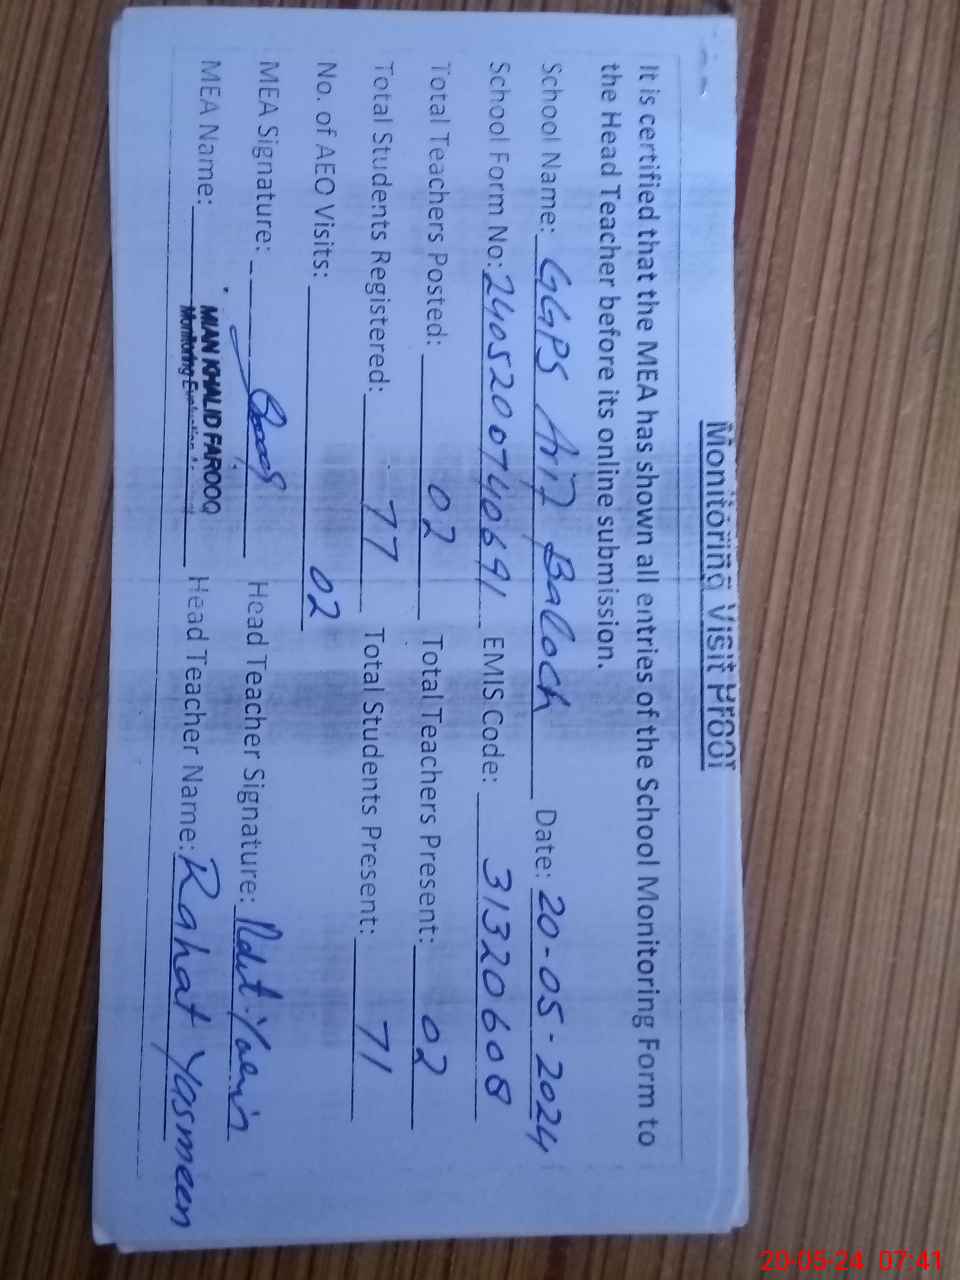 Monitoring Visit Proof
It is certified that the MEA has shown all entries of the School Monitoring Form to
the Head Teacher before its online submission.
School Name: GGPS Arif Baloch Date: 20-05-2024
School Form No: 2405200740691 EMIS Code: 31320608
Total Teachers Posted: 02 Total Teachers Present: 02
Total Students Registered: 77 Total Students Present: 71
No. of AEO Visits: 02
MEA Signature: Head Teacher Signature:
MEA Name: MIAN KHALID FAROOQ Head Teacher Name: Rahat Yasmeen
Monitoring Evaluation
20-05-24 07:41